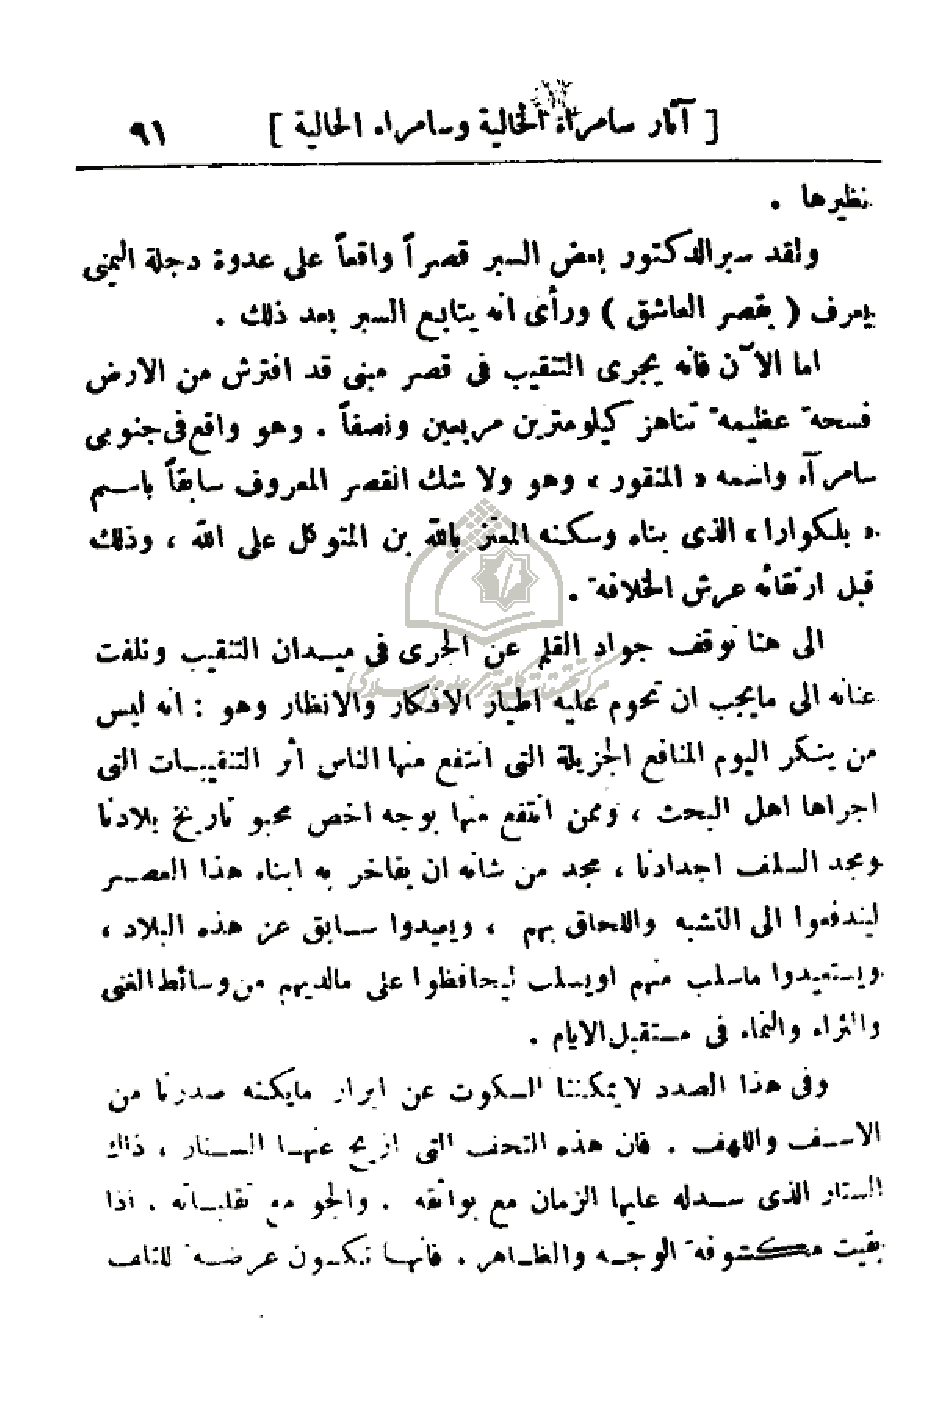 [ آثار سامرآء الخالية وسامراء الحالية ] ٩١
نظيرها .
ولقد سبر الدكتور بعض السبر قصراً واقعاً على عدوة دجلة اليمنى
يعرف ( بقصر العاشق ) ورأى انه يتابع السبر بعد ذلك .
اما الآن فانه يجرى التنقيب فى قصر مبنى قد افترش من الارض
فسحة عظيمة تناهز كيلومترين مربعين ونصفاً . وهو واقع فى جنوبى
سامرآء واسمه « المنقور » وهو ولا شك القصر المعروف سابقاً باسم
« بلكوارا » الذى بناه وسكنه المعتز بالله بن المتوكل على الله ، وذلك
قبل ارتقائه عرش الخلافة .
الى هنا نوقف جواد القلم عن الجرى فى ميدان التنقيب ونلفت
عنانه الى مايجب ان تحوم عليه اطيار الافكار والانظار وهو : انه ليس
من ينكر اليوم المنافع الجزيلة التى انتفع منها الناس أثر التنقيبات التى
اجراها اهل البحث ، وممن انتفع منها بوجه اخص محبو تاريخ بلادنا
ومجد السلف اجدادنا ، مجد من شانه ان يفاخر به ابناء هذا العصر
ليندفعوا الى التشبه واللحاق بهم ، ويعيدوا سابق عز هذه البلاد ،
ويستعيدوا ماسلب منهم اويسلب ليحافظوا على مالديهم من وسائط الغنى
والثراء والنماء فى مستقبل الايام .
وفى هذا الصدد لايمكننا السكوت عن ابراز مايكنه صدرنا من
الاسف واللهف . فان هذه التحف التى ازيح عنها الستار ، ذاك
الستار الذى سدله عليها الزمان مع بوائقه . والجو مع تقلباته . اذا
بقيت مكشوفة الوجه والظاهر . فانها تكون عرضة للتلف